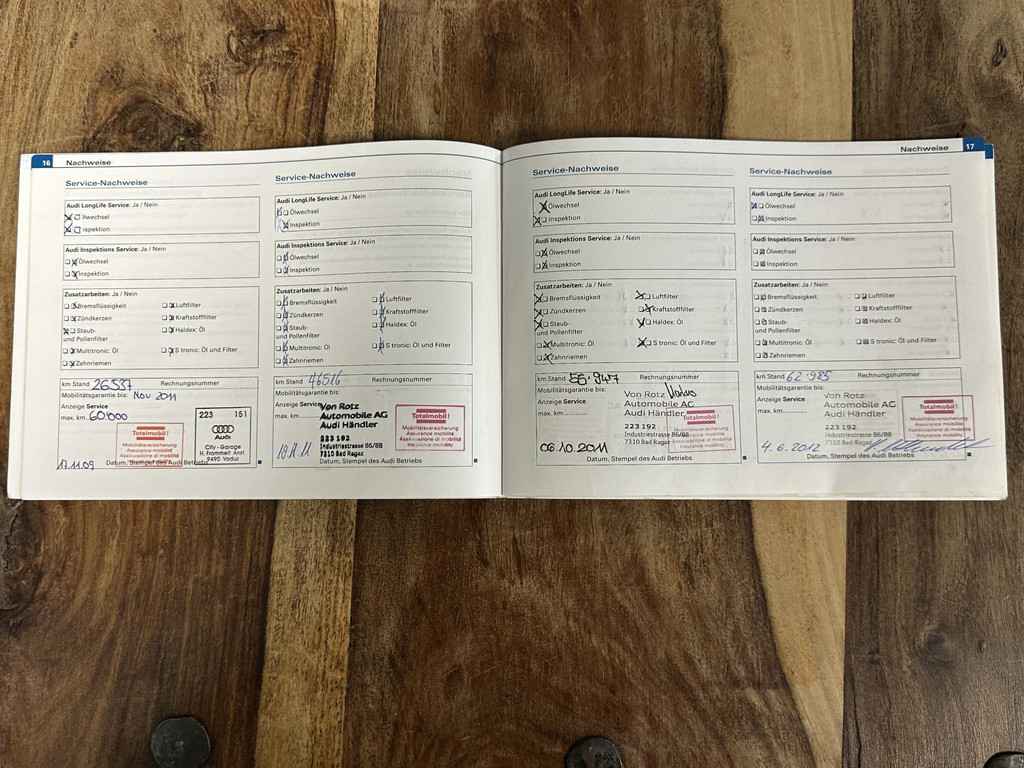 16 Nachweise
Service-Nachweise
Audi LongLife Service: Ja / Nein
Ölwechsel
Inspektion
Audi Inspektions Service: Ja / Nein
Ölwechsel
Inspektion
Zusatzarbeiten: Ja / Nein
Bremsflüssigkeit
Luftfilter
Zündkerzen
Kraftstofffilter
Staub-
und Pollenfilter
Haldex: Öl
Multitronic: Öl
S tronic: Öl und Filter
Zahnriemen
km Stand 26537 Rechnungsnummer
Mobilitätsgarantie bis: Nov 2011
Anzeige Service
max. km 60'000
Totalmobil!
Mobilitätsversicherung
Assurance mobilité
Assicurazione di mobilità
Mobility insurance
223 151
Audi
City-Garage
H. Frommelt Anst
9490 Vaduz
17.11.09
Datum, Stempel des Audi Betriebs
Service-Nachweise
Audi LongLife Service: Ja / Nein
Ölwechsel
Inspektion
Audi Inspektions Service: Ja / Nein
Ölwechsel
Inspektion
Zusatzarbeiten: Ja / Nein
Bremsflüssigkeit
Luftfilter
Zündkerzen
Kraftstofffilter
Staub-
und Pollenfilter
Haldex: Öl
Multitronic: Öl
S tronic: Öl und Filter
Zahnriemen
km Stand 46516 Rechnungsnummer
Mobilitätsgarantie bis:
Anzeige Service
max. km
Von Rotz
Automobile AG
Audi Händler
223 192
Industriestrasse 86/88
7310 Bad Ragaz
Totalmobil!
Mobilitätsversicherung
Assurance mobilité
Assicurazione di mobilità
Mobility insurance
Datum, Stempel des Audi Betriebs
Nachweise 17
Service-Nachweise
Audi LongLife Service: Ja / Nein
Ölwechsel
Inspektion
Audi Inspektions Service: Ja / Nein
Ölwechsel
Inspektion
Zusatzarbeiten: Ja / Nein
Bremsflüssigkeit
Luftfilter
Zündkerzen
Kraftstofffilter
Staub-
und Pollenfilter
Haldex: Öl
Multitronic: Öl
S tronic: Öl und Filter
Zahnriemen
km Stand 56.947 Rechnungsnummer
Mobilitätsgarantie bis:
Anzeige Service
max. km
Von Rotz
Automobile AG
Audi Händler
223 192
Industriestrasse 86/88
7310 Bad Ragaz
Totalmobil!
Mobilitätsversicherung
Assurance mobilité
Assicurazione di mobilità
Mobility insurance
06.10.2011
Datum, Stempel des Audi Betriebs
Service-Nachweise
Audi LongLife Service: Ja / Nein
Ölwechsel
Inspektion
Audi Inspektions Service: Ja / Nein
Ölwechsel
Inspektion
Zusatzarbeiten: Ja / Nein
Bremsflüssigkeit
Luftfilter
Zündkerzen
Kraftstofffilter
Staub-
und Pollenfilter
Haldex: Öl
Multitronic: Öl
S tronic: Öl und Filter
Zahnriemen
km Stand 62'985 Rechnungsnummer
Mobilitätsgarantie bis:
Anzeige Service
max. km
Von Rotz
Automobile AG
Audi Händler
223 192
Industriestrasse 86/88
7310 Bad Ragaz
Totalmobil!
Mobilitätsversicherung
Assurance mobilité
Assicurazione di mobilità
Mobility insurance
4.6.2012
Datum, Stempel des Audi Betriebs